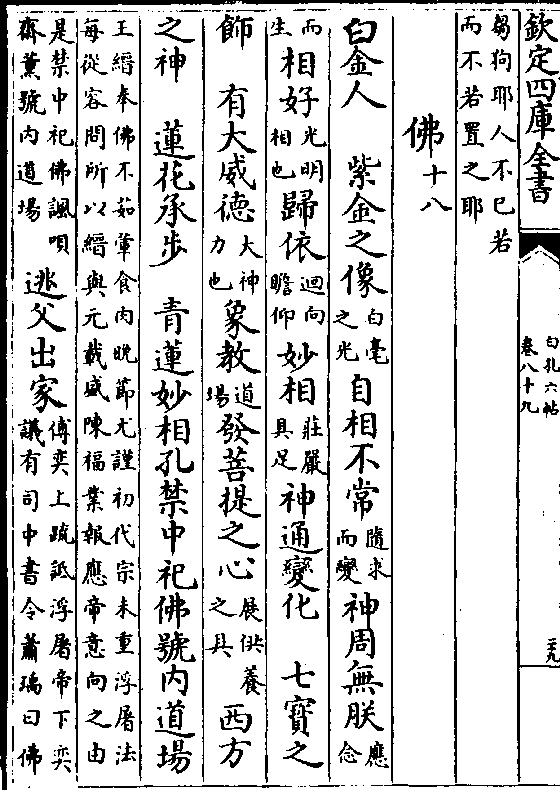 欽定四庫全書
白孔六帖
卷八十九
二九
芻狗耶人不已若
而不若置之耶
佛十八
白金人 紫金之像白毫之光自相不常隨求而變神周無朕應念
而生相好光明相也歸依迴向瞻仰妙相莊嚴具足神通變化 七寶之
飾 有大威德大神力也象教道場發菩提之心展供養之具 西方
之神 蓮花承步 青蓮妙相孔禁中祀佛號内道場
王縉奉佛不茹葷食肉晚節尤謹初代宗未重浮屠法
每從容問所以縉與元載盛陳福業報應帝意向之由
是禁中祀佛諷唄齋薰號内道場逃父出家傅奕上疏詆浮屠帝下奕議有司中書令蕭瑀曰佛